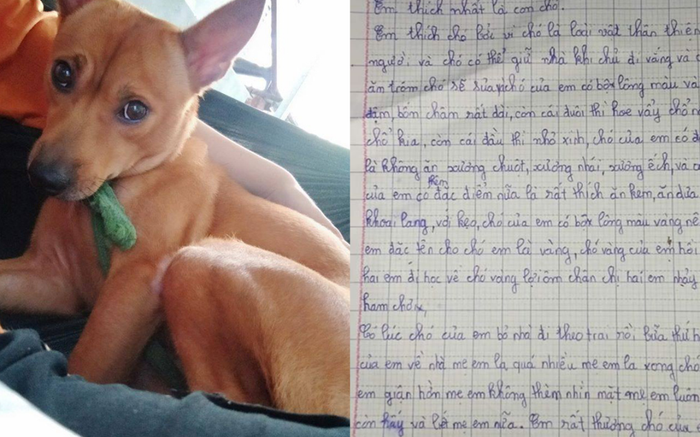 Em thích nhất là con chó.
Em thích chó bởi vì chó là loài vật thân thiên
người và chó có thể giữ nhà khi chủ đi vắng và c
ăn trộm chó sẽ sủa chó của em có bộ lông màu và
đậm, bốn chân rất dài, còn cái đuôi thì hoe vẩy chỗ n
chỗ kia, còn cái đầu thì nhỏ xinh, chó của em có đ
là không ăn xương chuột, xương nhái, xương ếch, và
của em có đặc điểm nữa là rất thích ăn kem, ăn dưa
khoai lang, và kẹo, chó của em có bộ lông màu vàng nê
em đặc tên cho chó em là vàng, chó vàng của em hồi
hai em đi học về chó vàng lại ôm chân chị hai em nhảy
ham chơi,
Có lúc chó của em bỏ nhà đi theo trai rồi bữa thứ h
của em về nhà mẹ em la quá nhiều mẹ em la xong chó
em giận hờn mẹ em không thèm nhìn mặt mẹ em luôn
còn hãy và liết mẹ em nữa. Em rất thương chó của